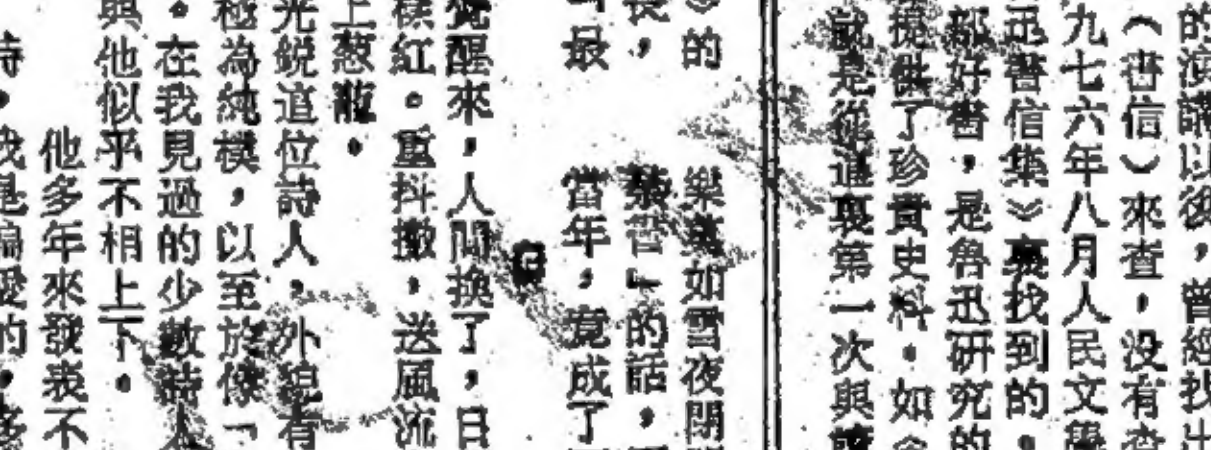 的演講以後，曾經找出
（書信）來查，没有查
九七六年八月人民文學
迅書信集》裏找到的。
部好書，是魯迅研究的
提供了珍貴史料。如
就是從這裏第一次與讀
》的
樂莫如雪夜閉門
長，
禁書」的話，
最
當年，竟成了
覺醒來，人間換了，日
樣紅。重抖擻，送風流
上葱蘢。
光銳這位詩人，外貌有
極為純樸，以至於像「
。在我見過的少數詩人
與他似乎不相上下。
他多年來發表不
詩，我是偏愛的，